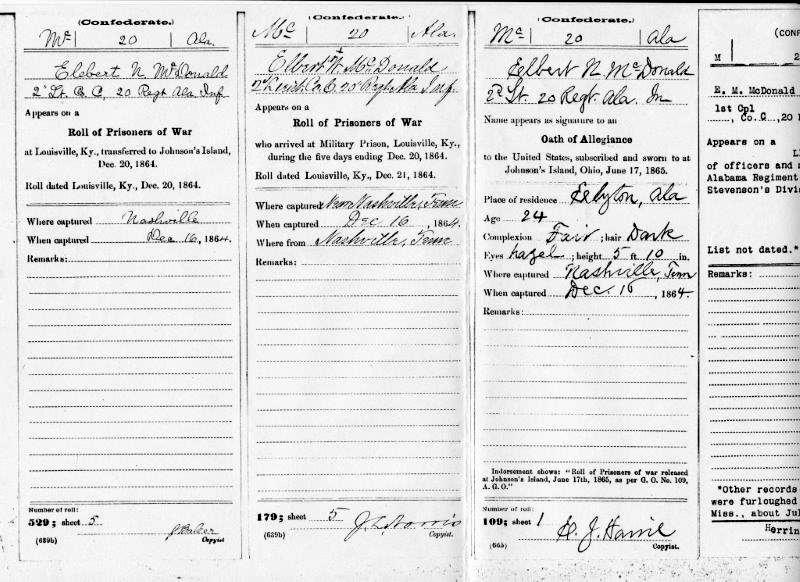 (Confederate.)
Mc | 20 | Ala.
Elebert N. McDonald
2" Lt. Co. C, 20 Regt Ala Inf
Appears on a
Roll of Prisoners of War
at Louisville, Ky., transferred to Johnson's Island,
Dec. 20, 1864.
Roll dated Louisville, Ky., Dec. 20, 1864.
Where captured Nashville
When captured Dec 16, 1864.
Remarks:
Number of roll:
529; sheet 5
(639b) Copyist
(Confederate.)
Mc | 20 | Ala.
Elbert N. McDonald
Co. C, 20 Regt Ala Inf.
Appears on a
Roll of Prisoners of War
who arrived at Military Prison, Louisville, Ky.,
during the five days ending Dec. 20, 1864.
Roll dated Louisville, Ky., Dec. 21, 1864.
Where captured Near Nashville, Tenn
When captured Dec 16, 1864.
Where from Nashville, Tenn
Remarks:
179; sheet 5
(639b) Copyist.
(Confederate.)
Mc | 20 | Ala
Elbert N McDonald
2d Lt. 20 Regt. Ala. In
Name appears as signature to an
Oath of Allegiance
to the United States, subscribed and sworn to at
Johnson's Island, Ohio, June 17, 1865.
Place of residence Elyton, Ala
Age 24
Complexion Fair; hair Dark
Eyes hazel; height 5 ft. 10 in.
Where captured Nashville, Tenn
When captured Dec. 16, 1864.
Remarks:
Indorsement shows: "Roll of Prisoners of war released
at Johnson's Island, June 17th, 1865, as per G. O. No. 109,
A. G. O."
Number of roll:
109; sheet 1
(665) Copyist.
(CONF
M | 2
E. M. McDonald
1st Cpl
, Co. C, 20
Appears on a
of officers and
Alabama Regiment
Stevenson's Divi
List not dated.*
Remarks:
*Other records
were furloughed
Miss., about Jul
Herrin